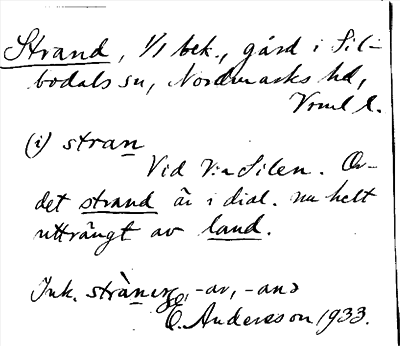 Strand, 1/1 bek., gård i Sil-
bodals sn, Nordmarks hd,
Vrml l.
(i) stran
Vid V:a Silen. Or-
det strand är i dial. nu helt
utträngt av land.
Ink. -ar, -and
E. Andersson 1933.